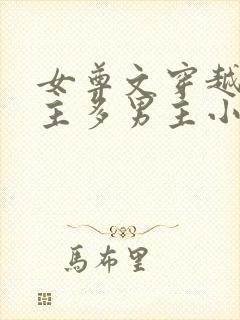 女尊文穿越
主多男主小
馬布里